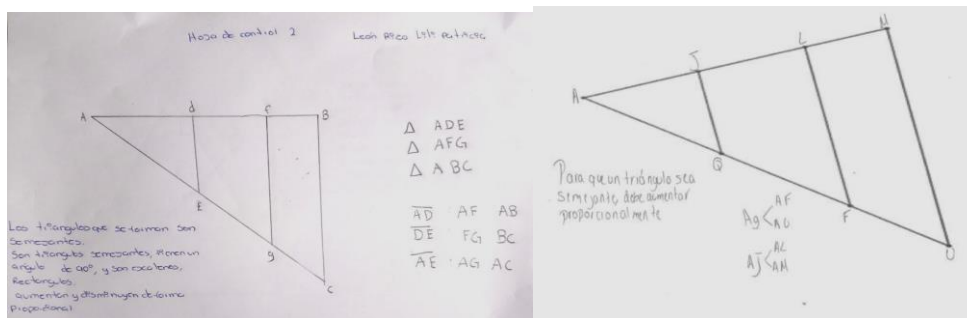 Hoja de control 2
León Rico
A
d
F
B
E
g
C
Δ ADE
Δ AFG
Δ ABC
AD AF AB
DE FG BC
AE AG AC
Los triangulos que se forman son
semejantes.
Son triangulos semejantes, tienen un
angulo de 90°, y son escalenos,
Rectangulos.
aumentan y disminuyen de forma
proporcional
A
J
L
N
Q
F
U
Para que un triángulo sea
semejante, debe aumentar
proporcionalmente
Ag < AF
AJ < AL
AN